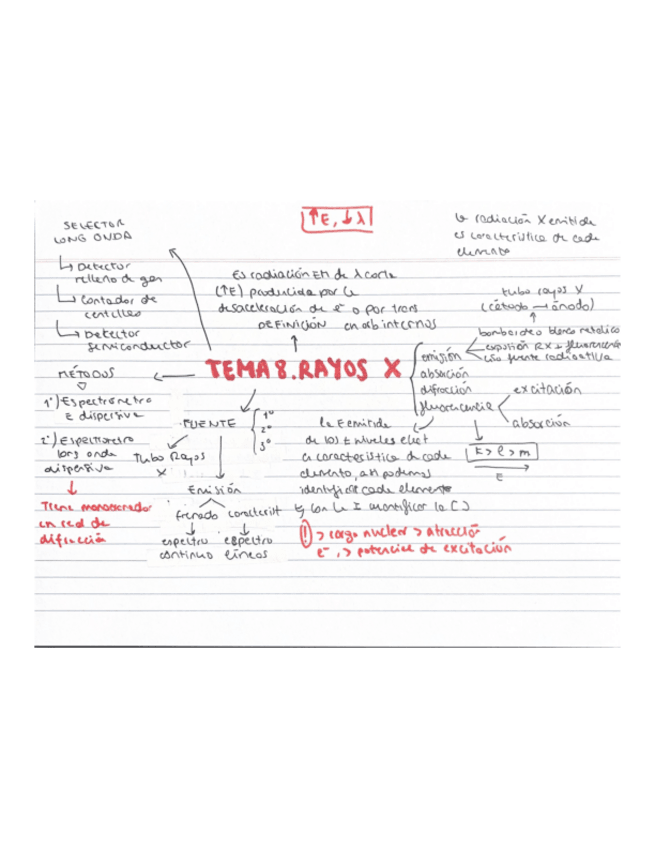 ↑E, ↓λ
SELECTOR
LONG ONDA
↳ Detector
relleno de gas
↳ Contador de
centelleo
↳ Detector
semiconductor
la radiación X emitida
es característica de cada
elemento
Es radiación EM de λ corta
(↑E) producida por la
desaceleración de e⁻ o por trans
DEFINICIÓN en orb internos
tubo rayos X
(cátodo → ánodo)
bombardeo blanco metálico
emisión
exposición RX → fluorescencia
uso fuente radioactiva
TEMA 8. RAYOS X
absorción
difracción
fluorescencia
excitación
absorción
K > L > M
E
MÉTODOS
1º) Espectrómetro
E dispersiva
2º) Espectrómetro
long onda
dispersiva
Tiene monocromador
en red de
difracción
FUENTE
1º
2º
3º
Tubo Rayos
X
Emisión
frenado caracterist
espectro espectro
continuo líneas
la E emitida
de los ≠ niveles elect
es característica de cada
elemento, así podemos
identificar cada elemento
y con la I cuantificar la [ ]
! > carga nuclear > atracción
e⁻, > potencial de excitación